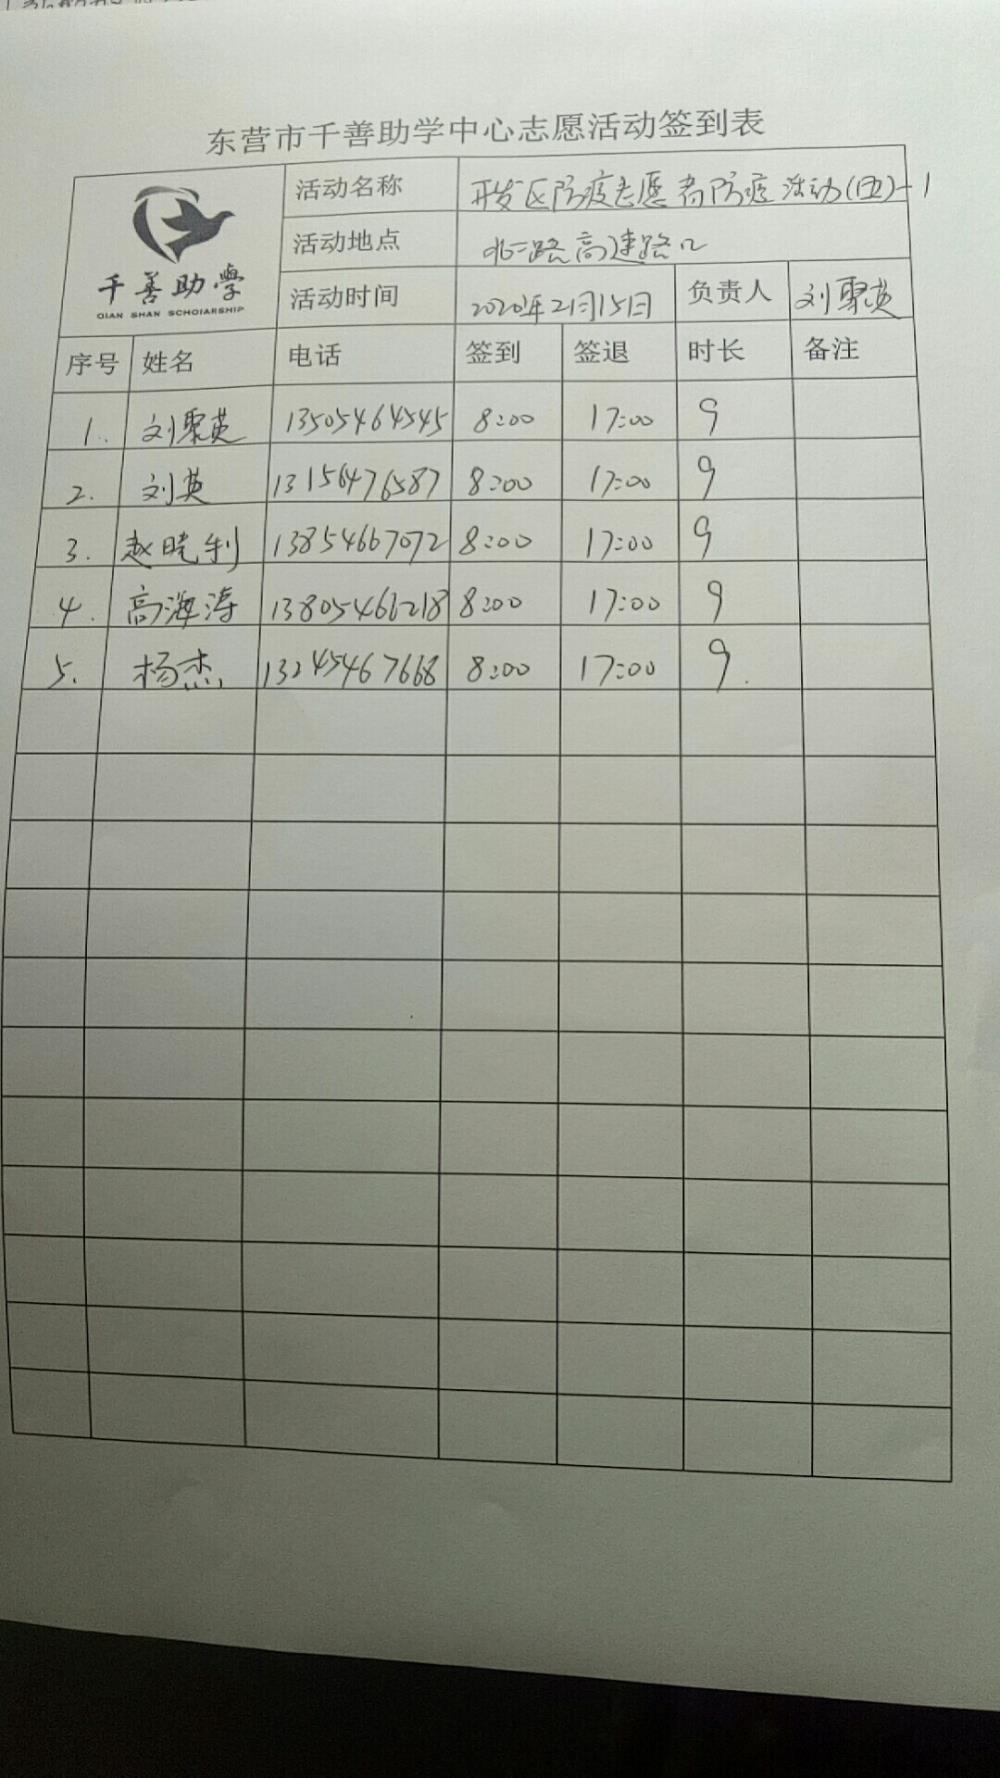 东营市千善助学中心志愿活动签到表
千善助学
QIAN SHAN SCHOIARSHIP
活动名称 开发区防疫志愿者防疫活动(四)-1
活动地点 北二路高速路口
活动时间 2020年2月15日 负责人 刘聚英
序号 姓名 电话 签到 签退 时长 备注
1. 刘聚英 13505464545 8:00 17:00 9
2. 刘英 13156476587 8:00 17:00 9
3. 赵晓利 13854667072 8:00 17:00 9
4. 高海涛 13805466218 8:00 17:00 9
5. 杨杰 13245467668 8:00 17:00 9.